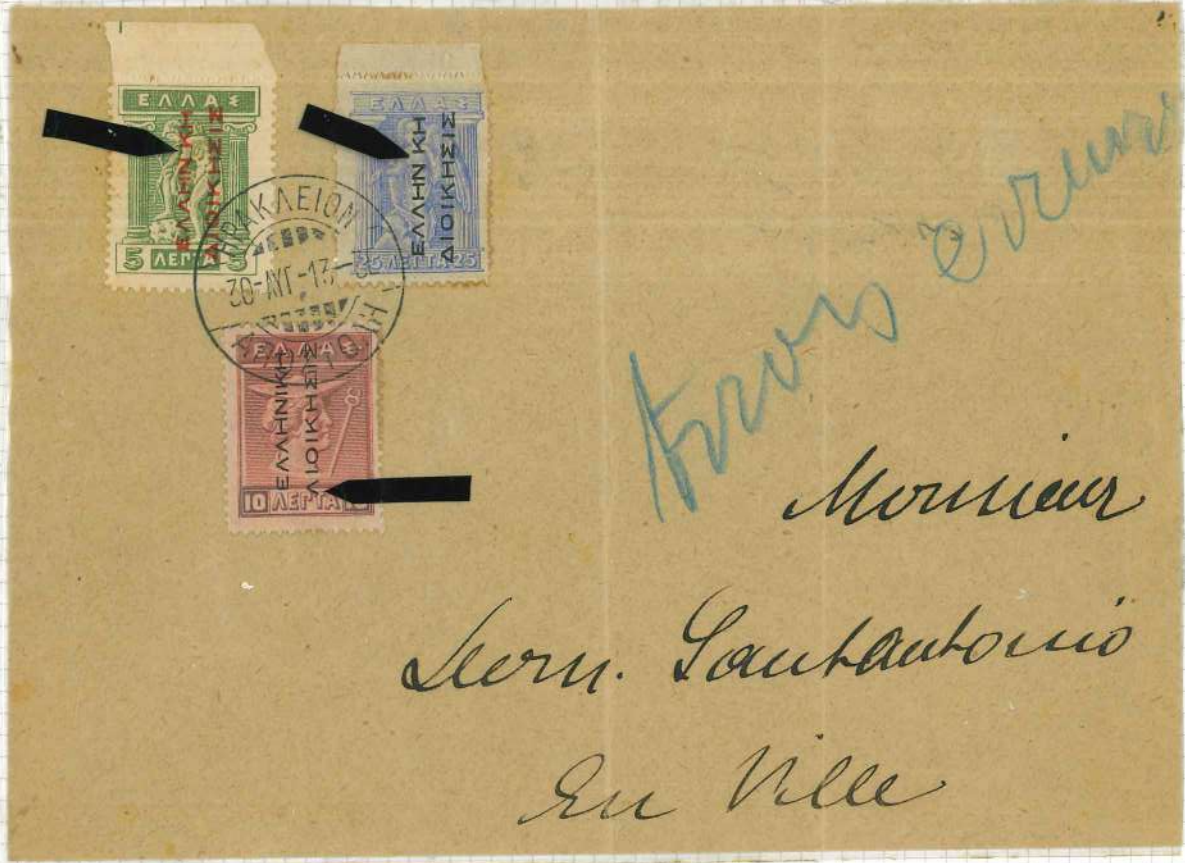 ΕΛΛΑΣ
ΕΛΛΗΝ ΚΗ
ΔΙΟΙΚΗΣΙΣ
5 ΛΕΠΤΑ 5
ΕΛΛΑΣ
ΕΛΛΗΝ ΚΗ
ΔΙΟΙΚΗΣΙΣ
25 ΛΕΠΤΑ 25
ΗΡΑΚΛΕΙΟΝ
30-ΑΥΓ-13
ΕΛΛΑΣ
ΕΛΛΗΝΙΚΗ
ΛΙΟΙΚΗΣΙΣ
10 ΛΕΠΤΑ 10
Monsieur
Santantonio
En Ville